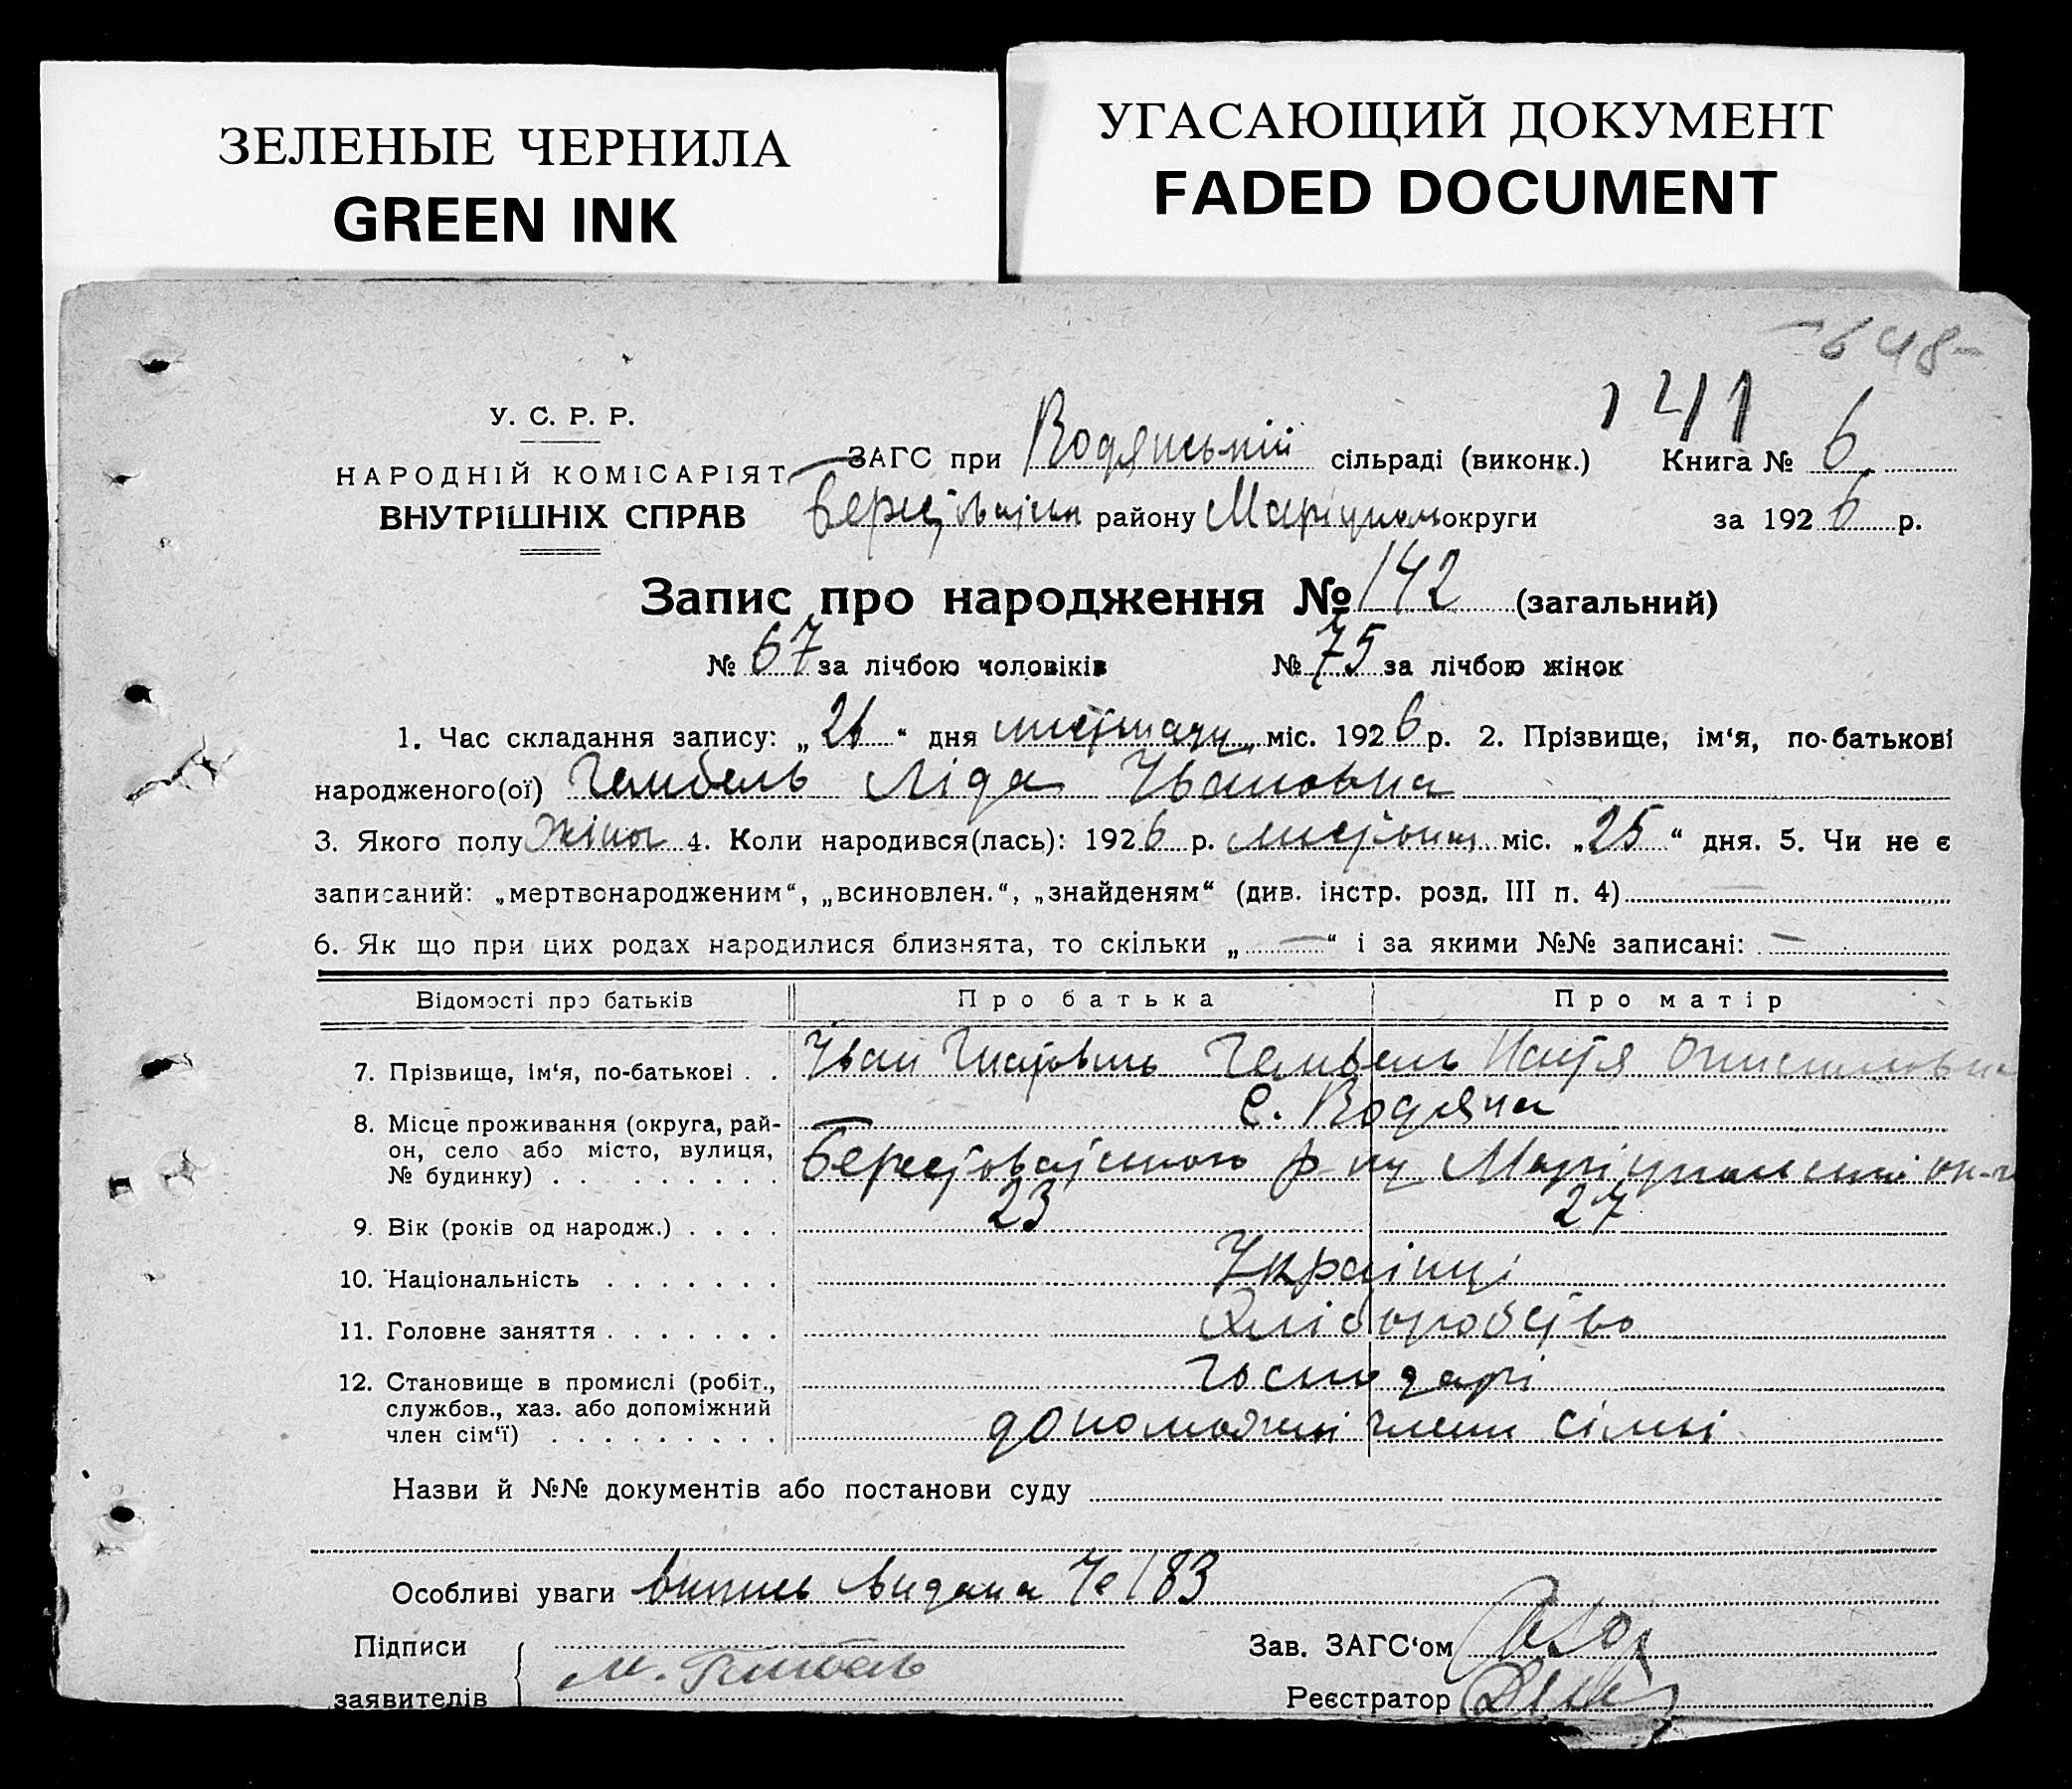 ЗЕЛЕНЫЕ ЧЕРНИЛА
GREEN INK
УГАСАЮЩИЙ ДОКУМЕНТ
FADED DOCUMENT
648-
141
У. С. Р. Р.
НАРОДНІЙ КОМІСАРІЯТ
ВНУТРІШНІХ СПРАВ
ЗАГС при Водянській сільраді (виконк.) Книга № 6
району округи за 1926 р.
Запис про народження № 142 (загальний)
№ 67 за лічбою чоловіків № 75 за лічбою жінок
1. Час складання запису: „ “ дня міс. 1926 р. 2. Прізвище, ім‘я, по-батькові
народженого(ої) Гембель Ліда Івановна
3. Якого полу жіноч 4. Коли народився(лась): 1926 р. міс. „25“ дня. 5. Чи не є
записаний: „мертвонародженим“, „всиновлен.“, „знайденям“ (див. інстр. розд. III п. 4)
6. Як що при цих родах народилися близнята, то скільки „ — “ і за якими №№ записані: —
Відомості про батьків Про батька Про матір
7. Прізвище, ім‘я, по-батькові . . Іван Гембель Настя
8. Місце проживання (округа, рай-
он, село або місто, вулиця,
№ будинку) . . . . . . . . .
с. Водяна
Берестоватського р-ну Маріупольської ок-
9. Вік (років од народж.) . . . . 23 27
10. Національність . . . . . . . Українці
11. Головне заняття . . . . . . . Хліборобство
12. Становище в промислі (робіт.,
службов., хаз. або допоміжний
член сім‘ї) . . . . . . . . .
господарі
допоможні члени сімьї
Назви й №№ документів або постанови суду
Особливі уваги випись видана № 183
Підписи
заявителів
М. Гембель
Зав. ЗАГС‘ом
Реєстратор